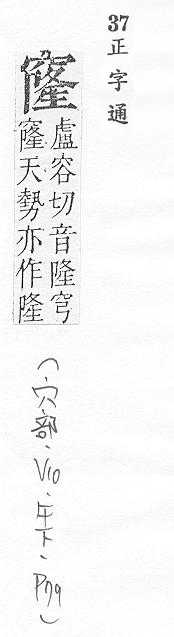 37 正字通
窿
盧容切音隆穹
窿天勢亦作隆
(穴部、V10、午下、P79)